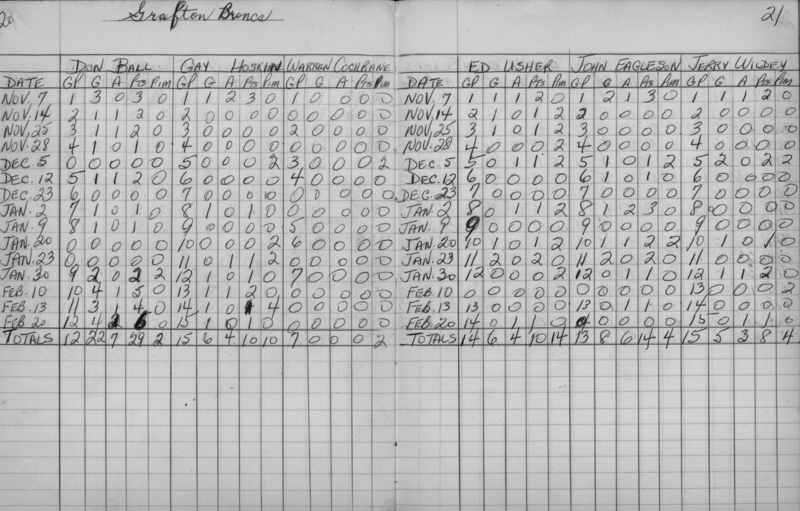 20 Grafton Broncs
DON BALL GAY HOSKIN WARREN COCHRANE
DATE GP G A Pts Pim GP G A Pts Pim GP G A Pts Pim
NOV. 7 1 3 0 3 0 1 1 2 3 0 1 0 0 0 0
NOV. 14 2 1 1 2 0 2 0 0 0 0 0 0 0 0 0
NOV. 25 3 1 1 2 0 3 0 0 0 0 2 0 0 0 0
NOV. 28 4 1 0 1 0 4 0 0 0 0 0 0 0 0 0
DEC. 5 0 0 0 0 0 5 0 0 0 2 3 0 0 0 2
DEC. 12 5 1 1 2 0 6 0 0 0 0 4 0 0 0 0
DEC. 23 6 0 0 0 0 7 0 0 0 0 0 0 0 0 0
JAN. 2 7 1 0 1 0 8 1 0 1 0 0 0 0 0 0
JAN. 9 8 1 0 1 0 9 0 0 0 0 5 0 0 0 0
JAN. 20 0 0 0 0 0 10 0 0 0 2 6 0 0 0 0
JAN. 23 0 0 0 0 0 11 0 1 1 2 0 0 0 0 0
JAN. 30 9 2 0 2 2 12 1 0 1 0 7 0 0 0 0
FEB. 10 10 4 1 5 0 13 1 1 2 0 0 0 0 0 0
FEB. 13 11 3 1 4 0 14 1 0 1 4 0 0 0 0 0
FEB 20 12 4 2 6 0 15 1 0 1 0 0 0 0 0 0
TOTALS 12 22 7 29 2 15 6 4 10 10 7 0 0 0 2
21
ED USHER JOHN EAGLESON JERRY WILDEY
DATE GP G A Pts Pim GP G A Pts Pim GP G A Pts Pim
NOV. 7 1 1 1 2 0 1 2 1 3 0 1 1 1 2 0
NOV. 14 2 1 0 1 2 2 0 0 0 0 2 0 0 0 0
NOV. 25 3 1 0 1 2 3 0 0 0 0 3 0 0 0 0
NOV. 28 4 0 0 0 2 4 0 0 0 0 4 0 0 0 0
DEC. 5 5 0 1 1 2 5 1 0 1 2 5 2 0 2 2
DEC. 12 6 0 0 0 0 6 1 0 1 0 6 0 0 0 0
DEC. 23 7 0 0 0 0 7 0 0 0 0 7 0 0 0 0
JAN. 2 8 0 1 1 2 8 1 2 3 0 8 0 0 0 0
JAN. 9 9 0 0 0 0 9 0 0 0 0 9 0 0 0 0
JAN. 20 10 1 0 1 2 10 1 1 2 2 10 1 0 1 0
JAN. 23 11 2 0 2 0 11 2 0 2 0 11 0 0 0 0
JAN. 30 12 0 0 0 2 12 0 1 1 0 12 1 1 2 0
FEB. 10 0 0 0 0 0 0 0 0 0 0 13 0 0 0 2
FEB. 13 13 0 0 0 0 13 0 1 1 0 14 0 0 0 0
FEB. 20 14 0 1 1 0 0 0 0 0 15 0 1 1 0
TOTALS 14 6 4 10 14 13 8 6 14 4 15 5 3 8 4